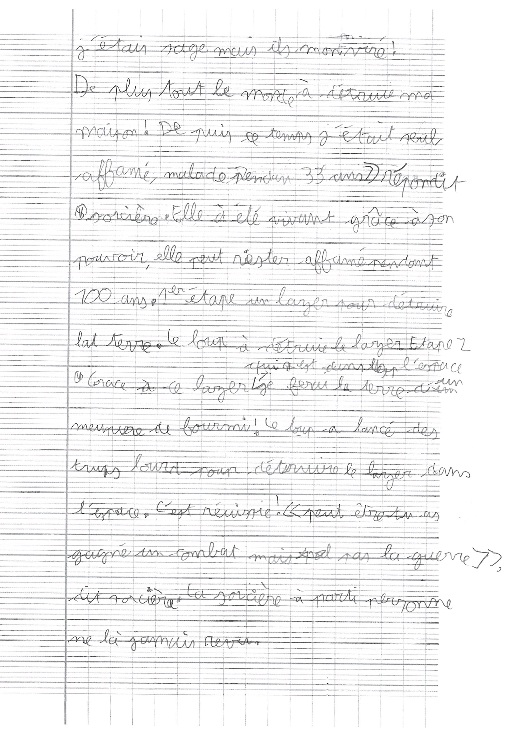 j'étais sage mais ils mon viré!
De plus tout le monde à détruit ma
maison! De puis ce temps j'était seul,
affamé, malade pendan 33 ans » répondit
sorcière. Elle à été vivant grâce à son
pouvoir, elle peut rester affamé pendant
100 ans. 1er étape un lazer pour détruire
lat terre. Le loup à détruie le lazer Etape 2
qui est dans l'espace
Grace à ce lazer je ferus la terre d'un
un
de fourmi! Le loup a lancé des
trups lourd pour déteruire le lazer dans
l'espace. C'est réussie! « peut être tu as
gagné un combat mais pas la guerre »,
dit sorcière. La sorcière à parti personne
ne là jamais revu.